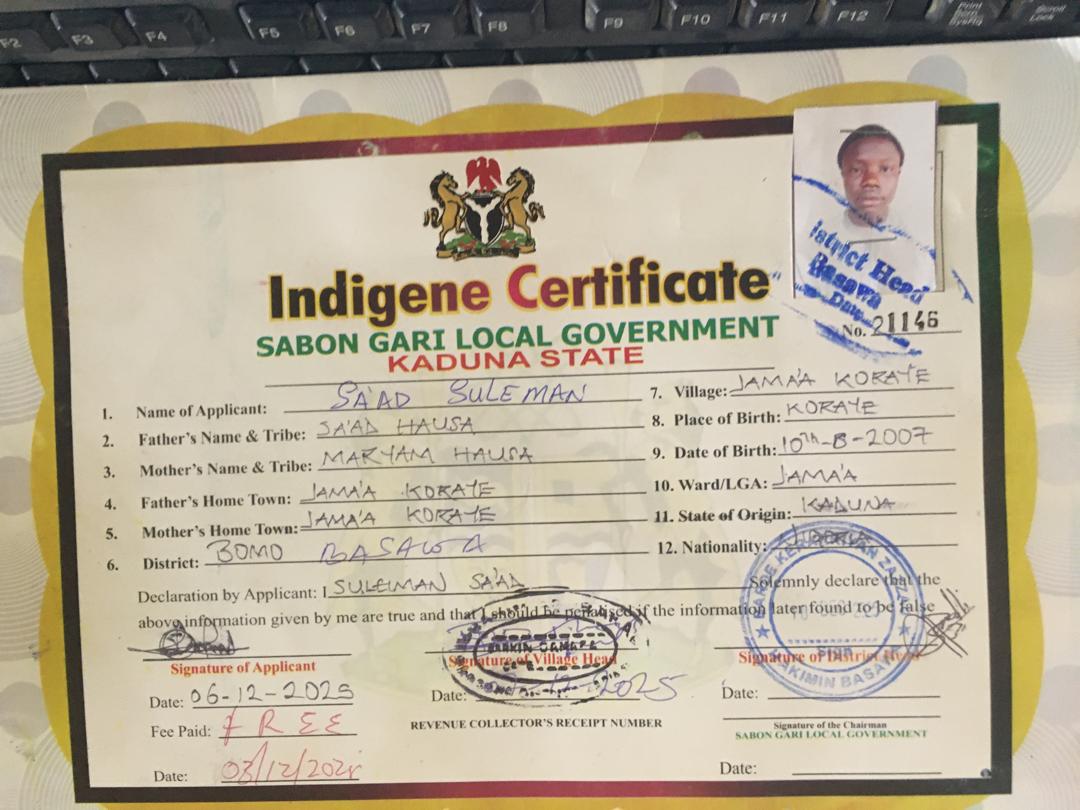 F2 F3 F4 F5 F6 F7 F8 F9 F10 F11 F12 Print Scrn SysRq Scroll Lock
Indigene Certificate
SABON GARI LOCAL GOVERNMENT
KADUNA STATE
District Head
Basawa
Date
No. 21146
1. Name of Applicant: SA'AD SULEMAN
2. Father's Name & Tribe: SA'AD HAUSA
3. Mother's Name & Tribe: MARYAM HAUSA
4. Father's Home Town: JAMA'A KORAYE
5. Mother's Home Town: JAMA'A KORAYE
6. District: BOMO BASAWA
7. Village: JAMA'A KORAYE
8. Place of Birth: KORAYE
9. Date of Birth: 10th-8-2007
10. Ward/LGA: JAMA'A
11. State of Origin: KADUNA
12. Nationality:
Declaration by Applicant: I SULEIMAN SA'AD Solemnly declare that the
above information given by me are true and that I should be penalised if the information later found to be false
Signature of Applicant
Date: 06-12-2025
Fee Paid: FREE
Date: 03/12/202
Signature of Village Head
Date: -12-2025
REVENUE COLLECTOR'S RECEIPT NUMBER
Signature of District Head
HAKIMIN BASAWA
Date:
Signature of the Chairman
SABON GARI LOCAL GOVERNMENT
Date: